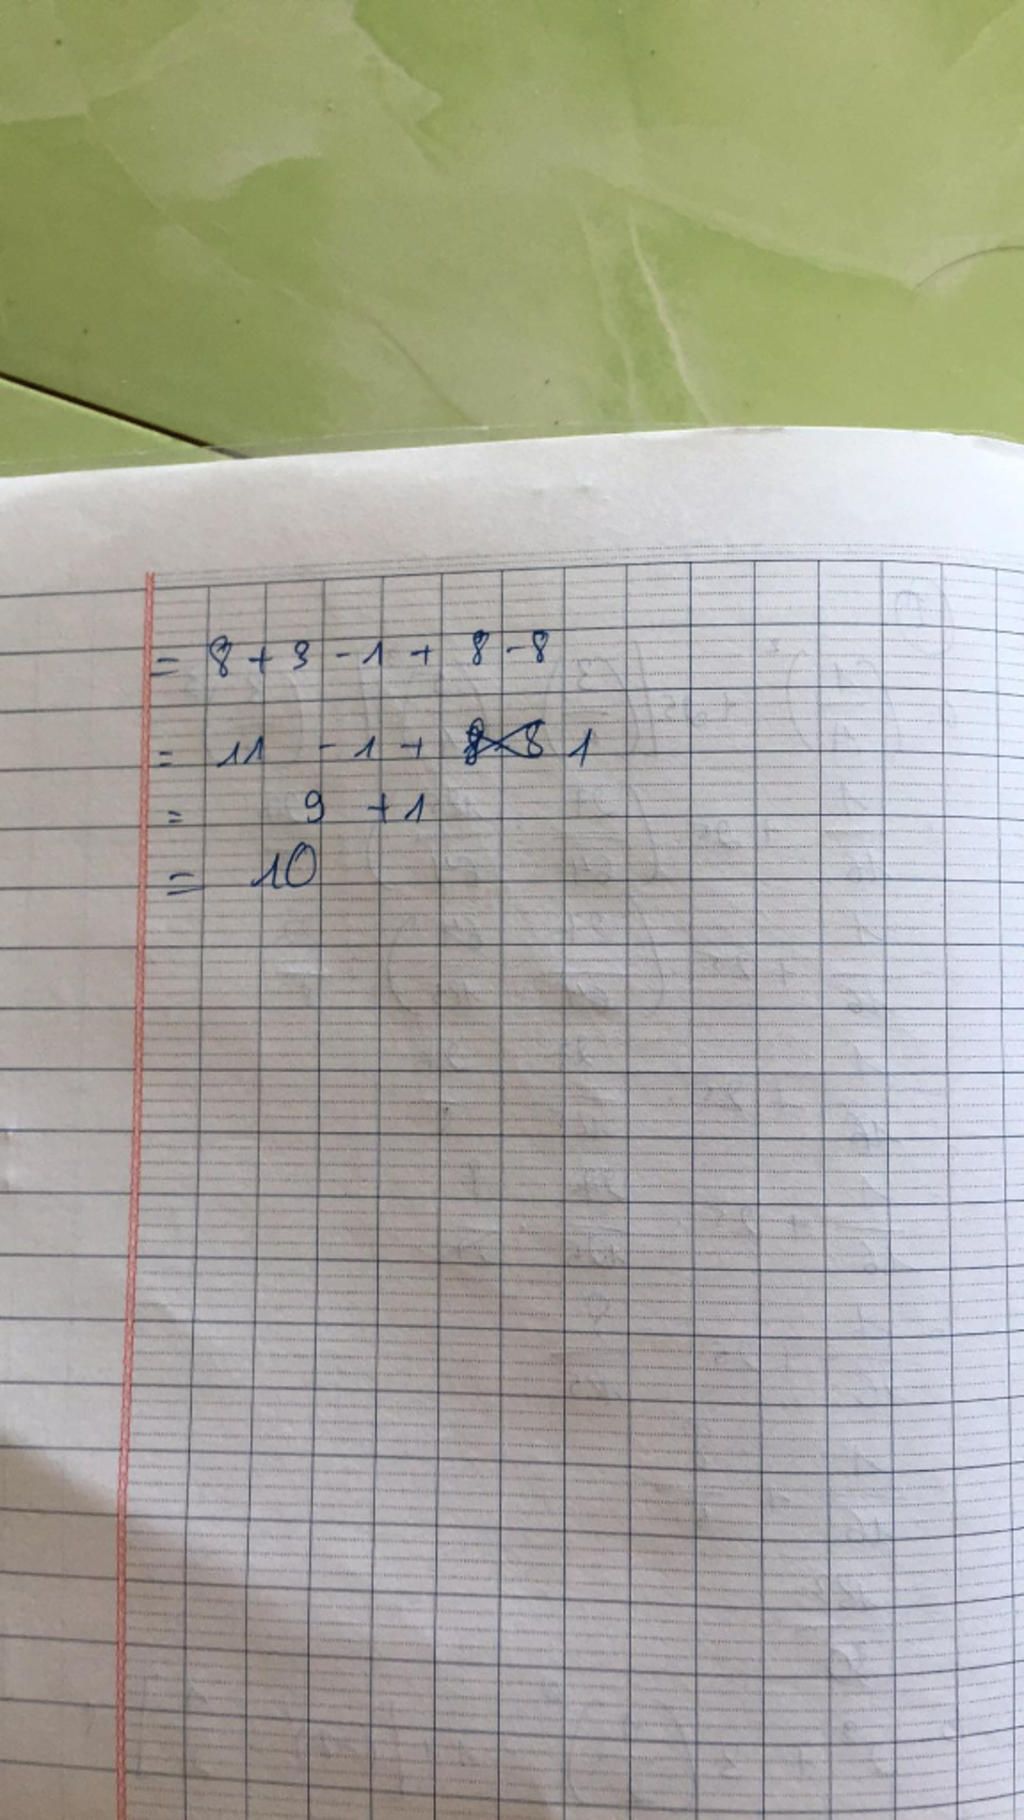 = 8 + 3 - 1 + 8 - 8
= 11 - 1 + 1
= 9 + 1
= 10